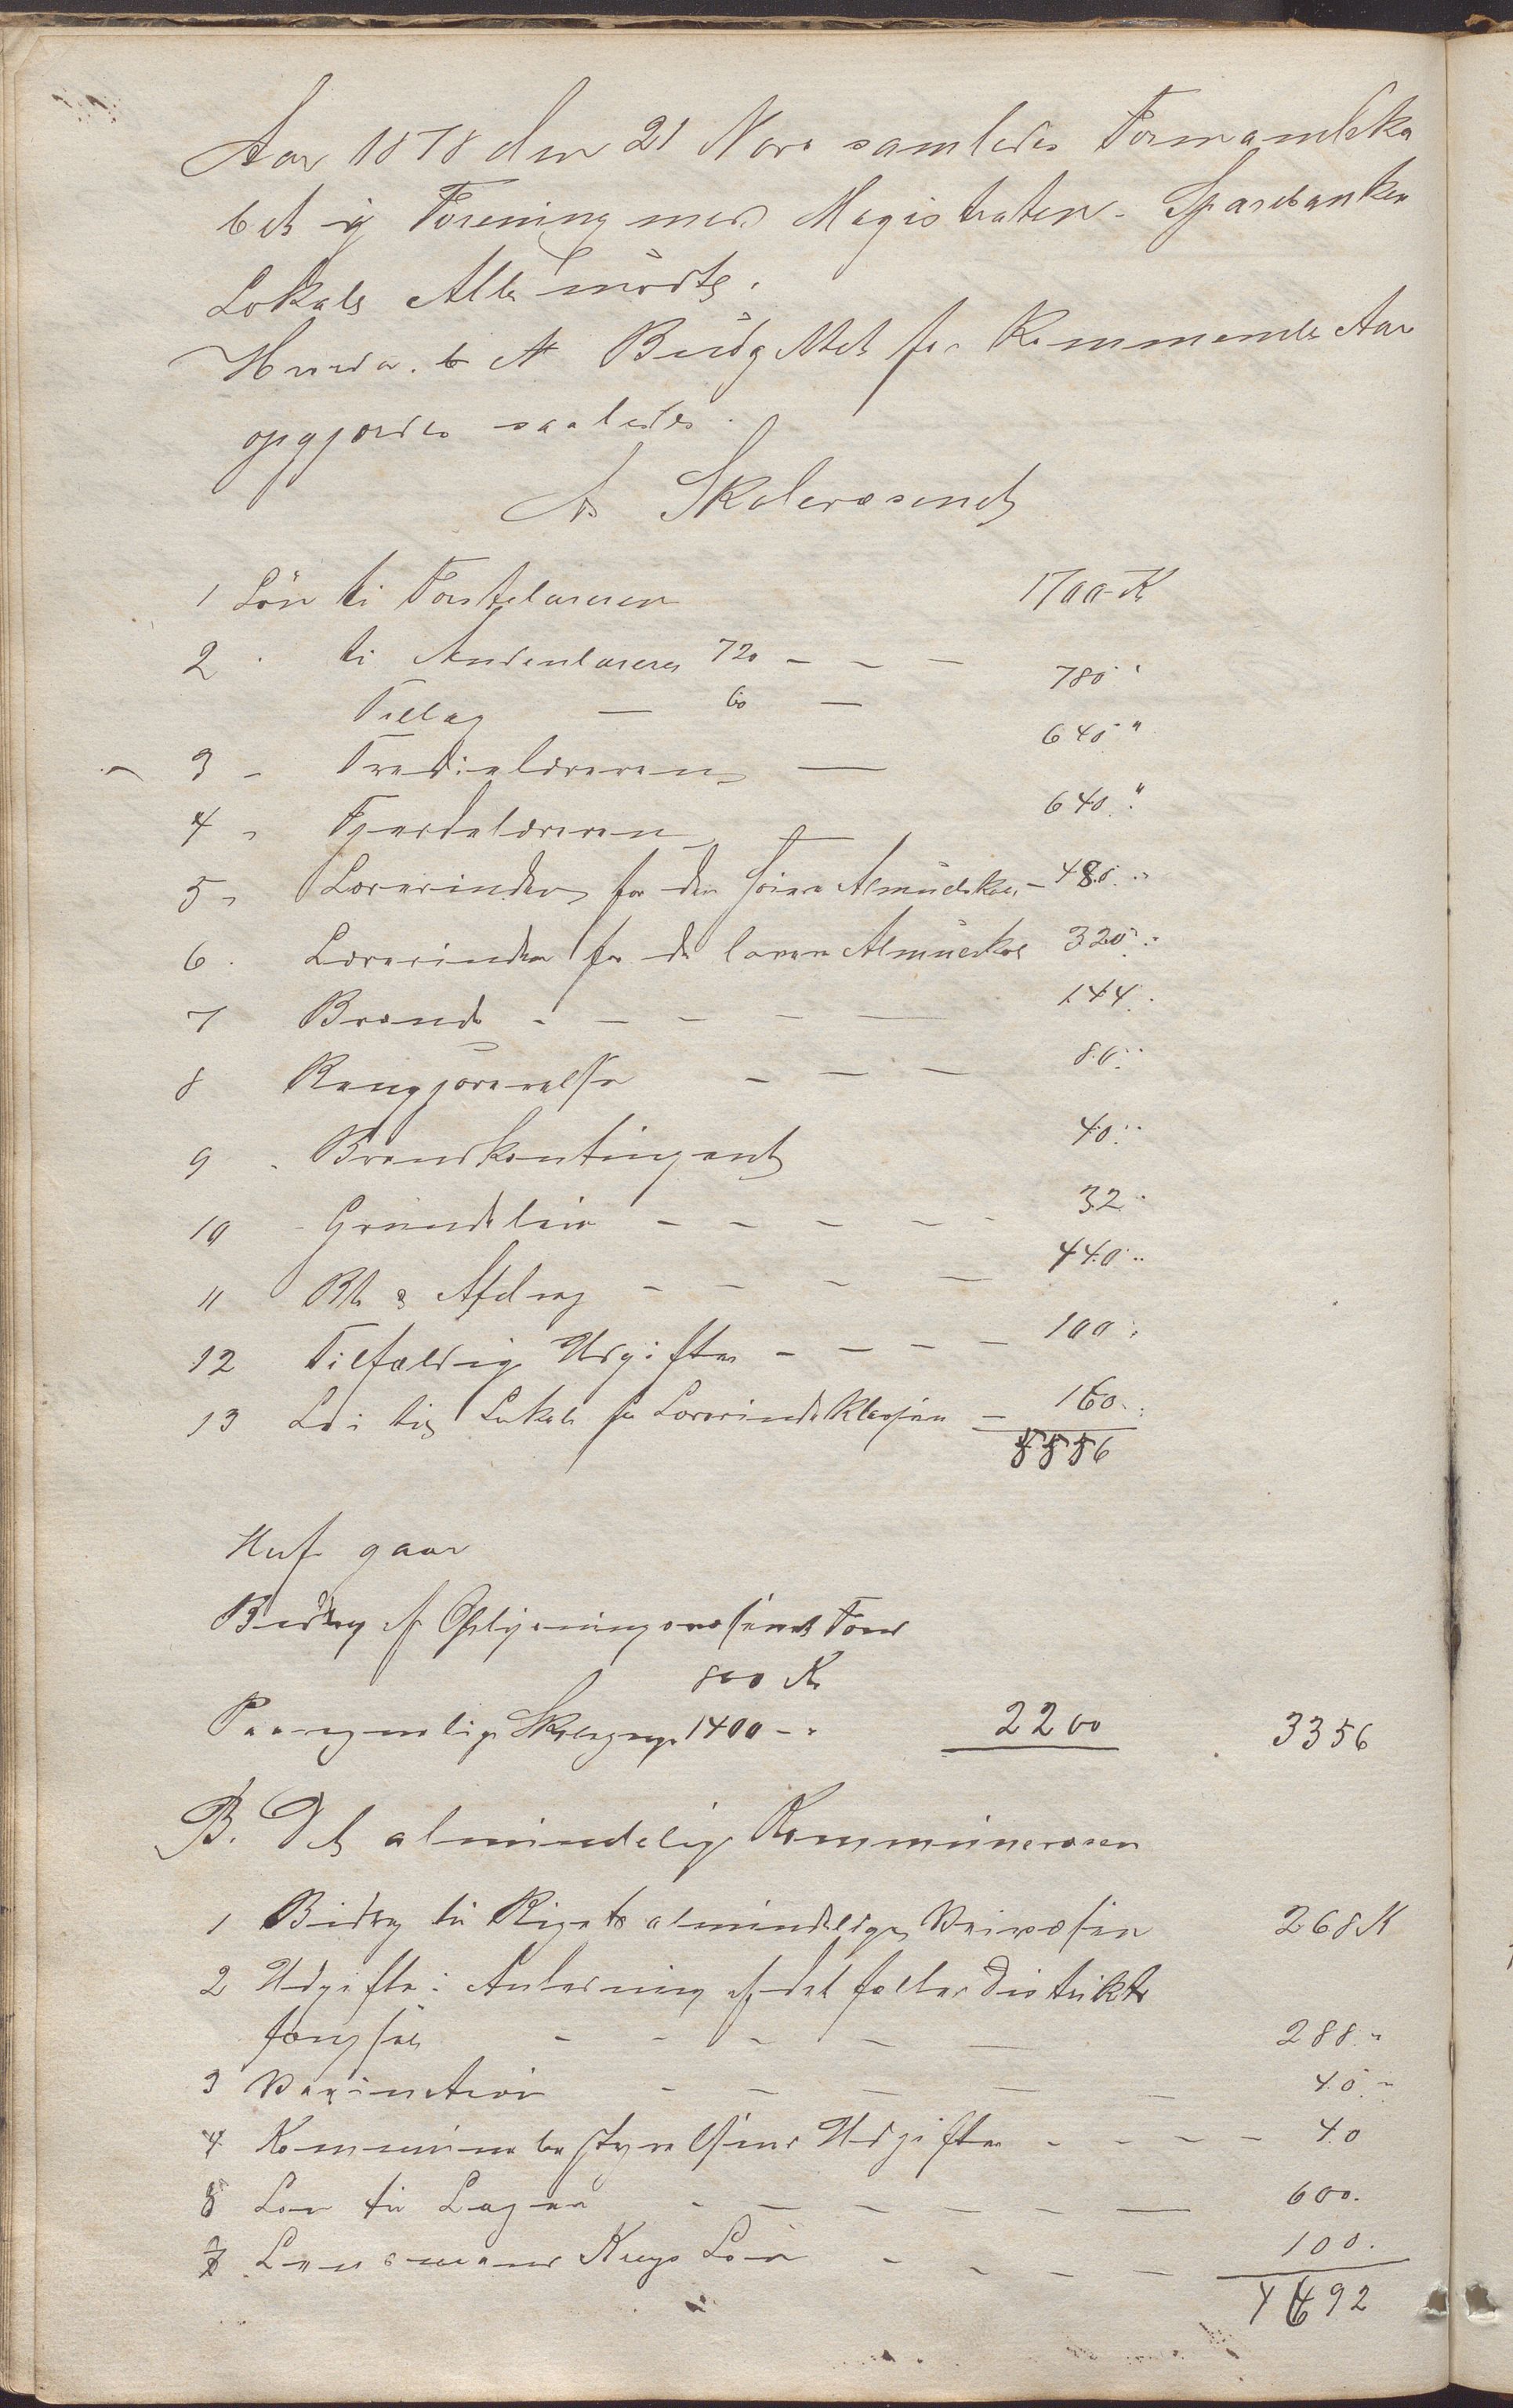 Aar 1878 den 21 Novr samledes Formandska
bet i Forening med Magistraten i Sparebankens
Lokale Alle mødte.
Hvorda. b At Budgettet for Kommende Aar
opgjordes saaledes.
A Skolevæsenet
1 Løn til Førstelæreren 1700 K
2 " til Andenlæreren 720 - - - 780 "
Tillæg — 60 —
3 - Tredielæreren — 640 "
4 " Fjerdelæreren 640 "
5 " Lærerinden for den høiere Almueskole - 480 "
6 . Lærerinden for de lavere Almueskole 320 "
7 Brænde - - - - — 144 .
8 Rengjørerelse - - - 80 "
9 . Brandkontingent 40 "
10 - Grundleie - - - - - 32 "
11 Rt & Afdrag - - - - 440 "
12 Tilfældige Udgifter - - - - 100 "
13 Leie til Lokale for Lærerindeklassen - 160 "
5556
Heraf gaar
Bidrag af Oplysningsvæsenets Fond
800 Kr
Paaregnelige Skolepenge 1400 - " 2200 3356
B. Det almindelige Kommunevæsen
1 Bidrag til Rigets almindelige Veivæsen 268 K
2 Udgifter i Anledning af det fælles Distrikts
fængsel - - - - — 288 "
3 Vaxination - - - - - 40 "
4 Kommunebestyrelsens Udgifter - - - - 40
5 Løn til Lægen - - - - - — 600.
6 Lensmand Krogs Løn - - - - 100.
4692